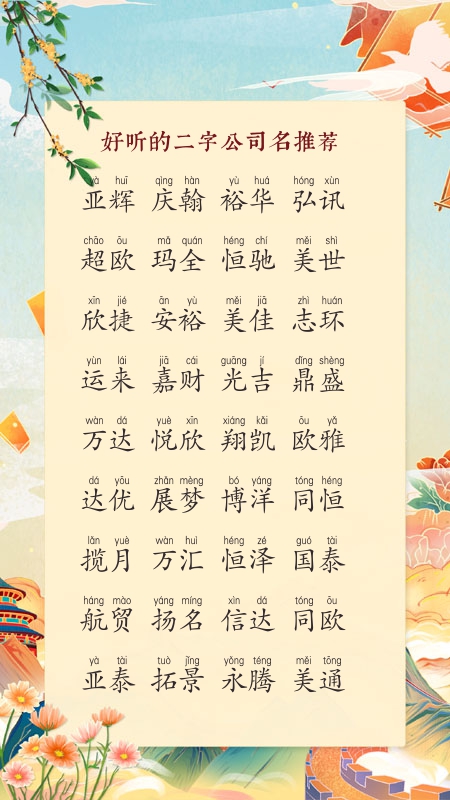 好听的二字公司名推荐
yà huī qìng hàn yù huá hóng xùn
亚辉 庆翰 裕华 弘讯
chāo ōu mǎ quán héng chí měi shì
超欧 玛全 恒驰 美世
xīn jié ān yù měi jiā zhì huán
欣捷 安裕 美佳 志环
yùn lái jiā cái guāng jí dǐng shèng
运来 嘉财 光吉 鼎盛
wàn dá yuè xīn xiáng kǎi ōu yǎ
万达 悦欣 翔凯 欧雅
dá yōu zhǎn mèng bó yáng tóng héng
达优 展梦 博洋 同恒
lǎn yuè wàn huì héng zé guó tài
揽月 万汇 恒泽 国泰
háng mào yáng míng xìn dá tóng ōu
航贸 扬名 信达 同欧
yà tài tuò jǐng yǒng téng měi tōng
亚泰 拓景 永腾 美通